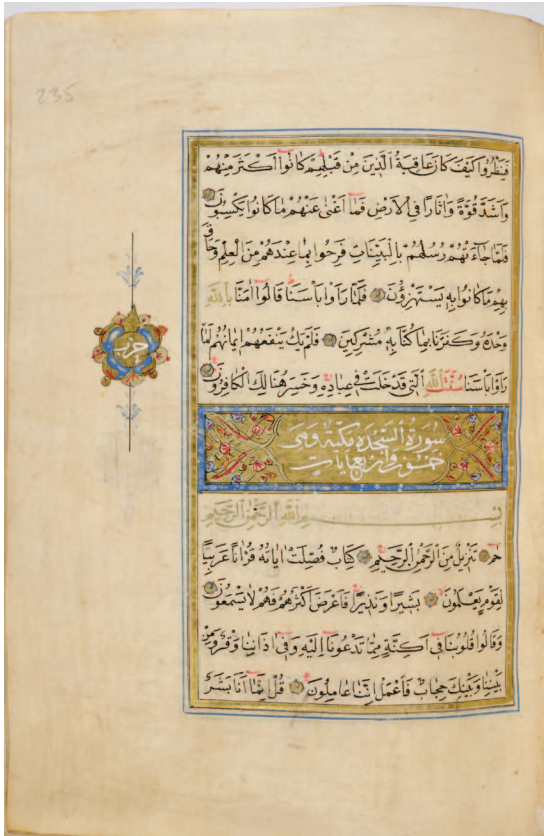 235
فَيَنْظُرُوا كَيْفَ كَانَ عَاقِبَةُ الَّذِينَ مِنْ قَبْلِهِمْ كَانُوا أَكْثَرَ مِنْهُمْ
وَأَشَدَّ قُوَّةً وَآثَارًا فِي الْأَرْضِ فَمَا أَغْنَى عَنْهُمْ مَا كَانُوا يَكْسِبُونَ
فَلَمَّا جَاءَتْهُمْ رُسُلُهُمْ بِالْبَيِّنَاتِ فَرِحُوا بِمَا عِنْدَهُمْ مِنَ الْعِلْمِ وَحَاقَ
بِهِمْ مَا كَانُوا بِهِ يَسْتَهْزِؤُنَ فَلَمَّا رَاَوْا بَاْسَنَا قَالُوا اٰمَنَّا بِاللّٰهِ
وَحْدَهُ وَكَفَرْنَا بِمَا كُنَّا بِهِ مُشْرِكِينَ فَلَمْ يَكُ يَنْفَعُهُمْ اِيمَانُهُمْ لَمَّا
رَاَوْا بَاْسَنَا سُنَّتَ اللّٰهِ الَّتِي قَدْ خَلَتْ فِي عِبَادِهِ وَخَسِرَ هُنَالِكَ الْكَافِرُونَ
حزب
سورة السجدة مكية وهى
خمس واربع ايات
بسم الله الرحمن الرحيم
حٰم تَنْزِيلٌ مِنَ الرَّحْمٰنِ الرَّحِيمِ كِتَابٌ فُصِّلَتْ اٰيَاتُهُ قُرْاٰنًا عَرَبِيًّا
لِقَوْمٍ يَعْلَمُونَ بَشِيرًا وَنَذِيرًا فَاَعْرَضَ اَكْثَرُهُمْ فَهُمْ لَا يَسْمَعُونَ
وَقَالُوا قُلُوبُنَا فِي اَكِنَّةٍ مِمَّا تَدْعُونَا اِلَيْهِ وَفِي اٰذَانِنَا وَقْرٌ وَمِنْ
بَيْنِنَا وَبَيْنِكَ حِجَابٌ فَاعْمَلْ اِنَّنَا عَامِلُونَ قُلْ اِنَّمَا اَنَا بَشَرٌ